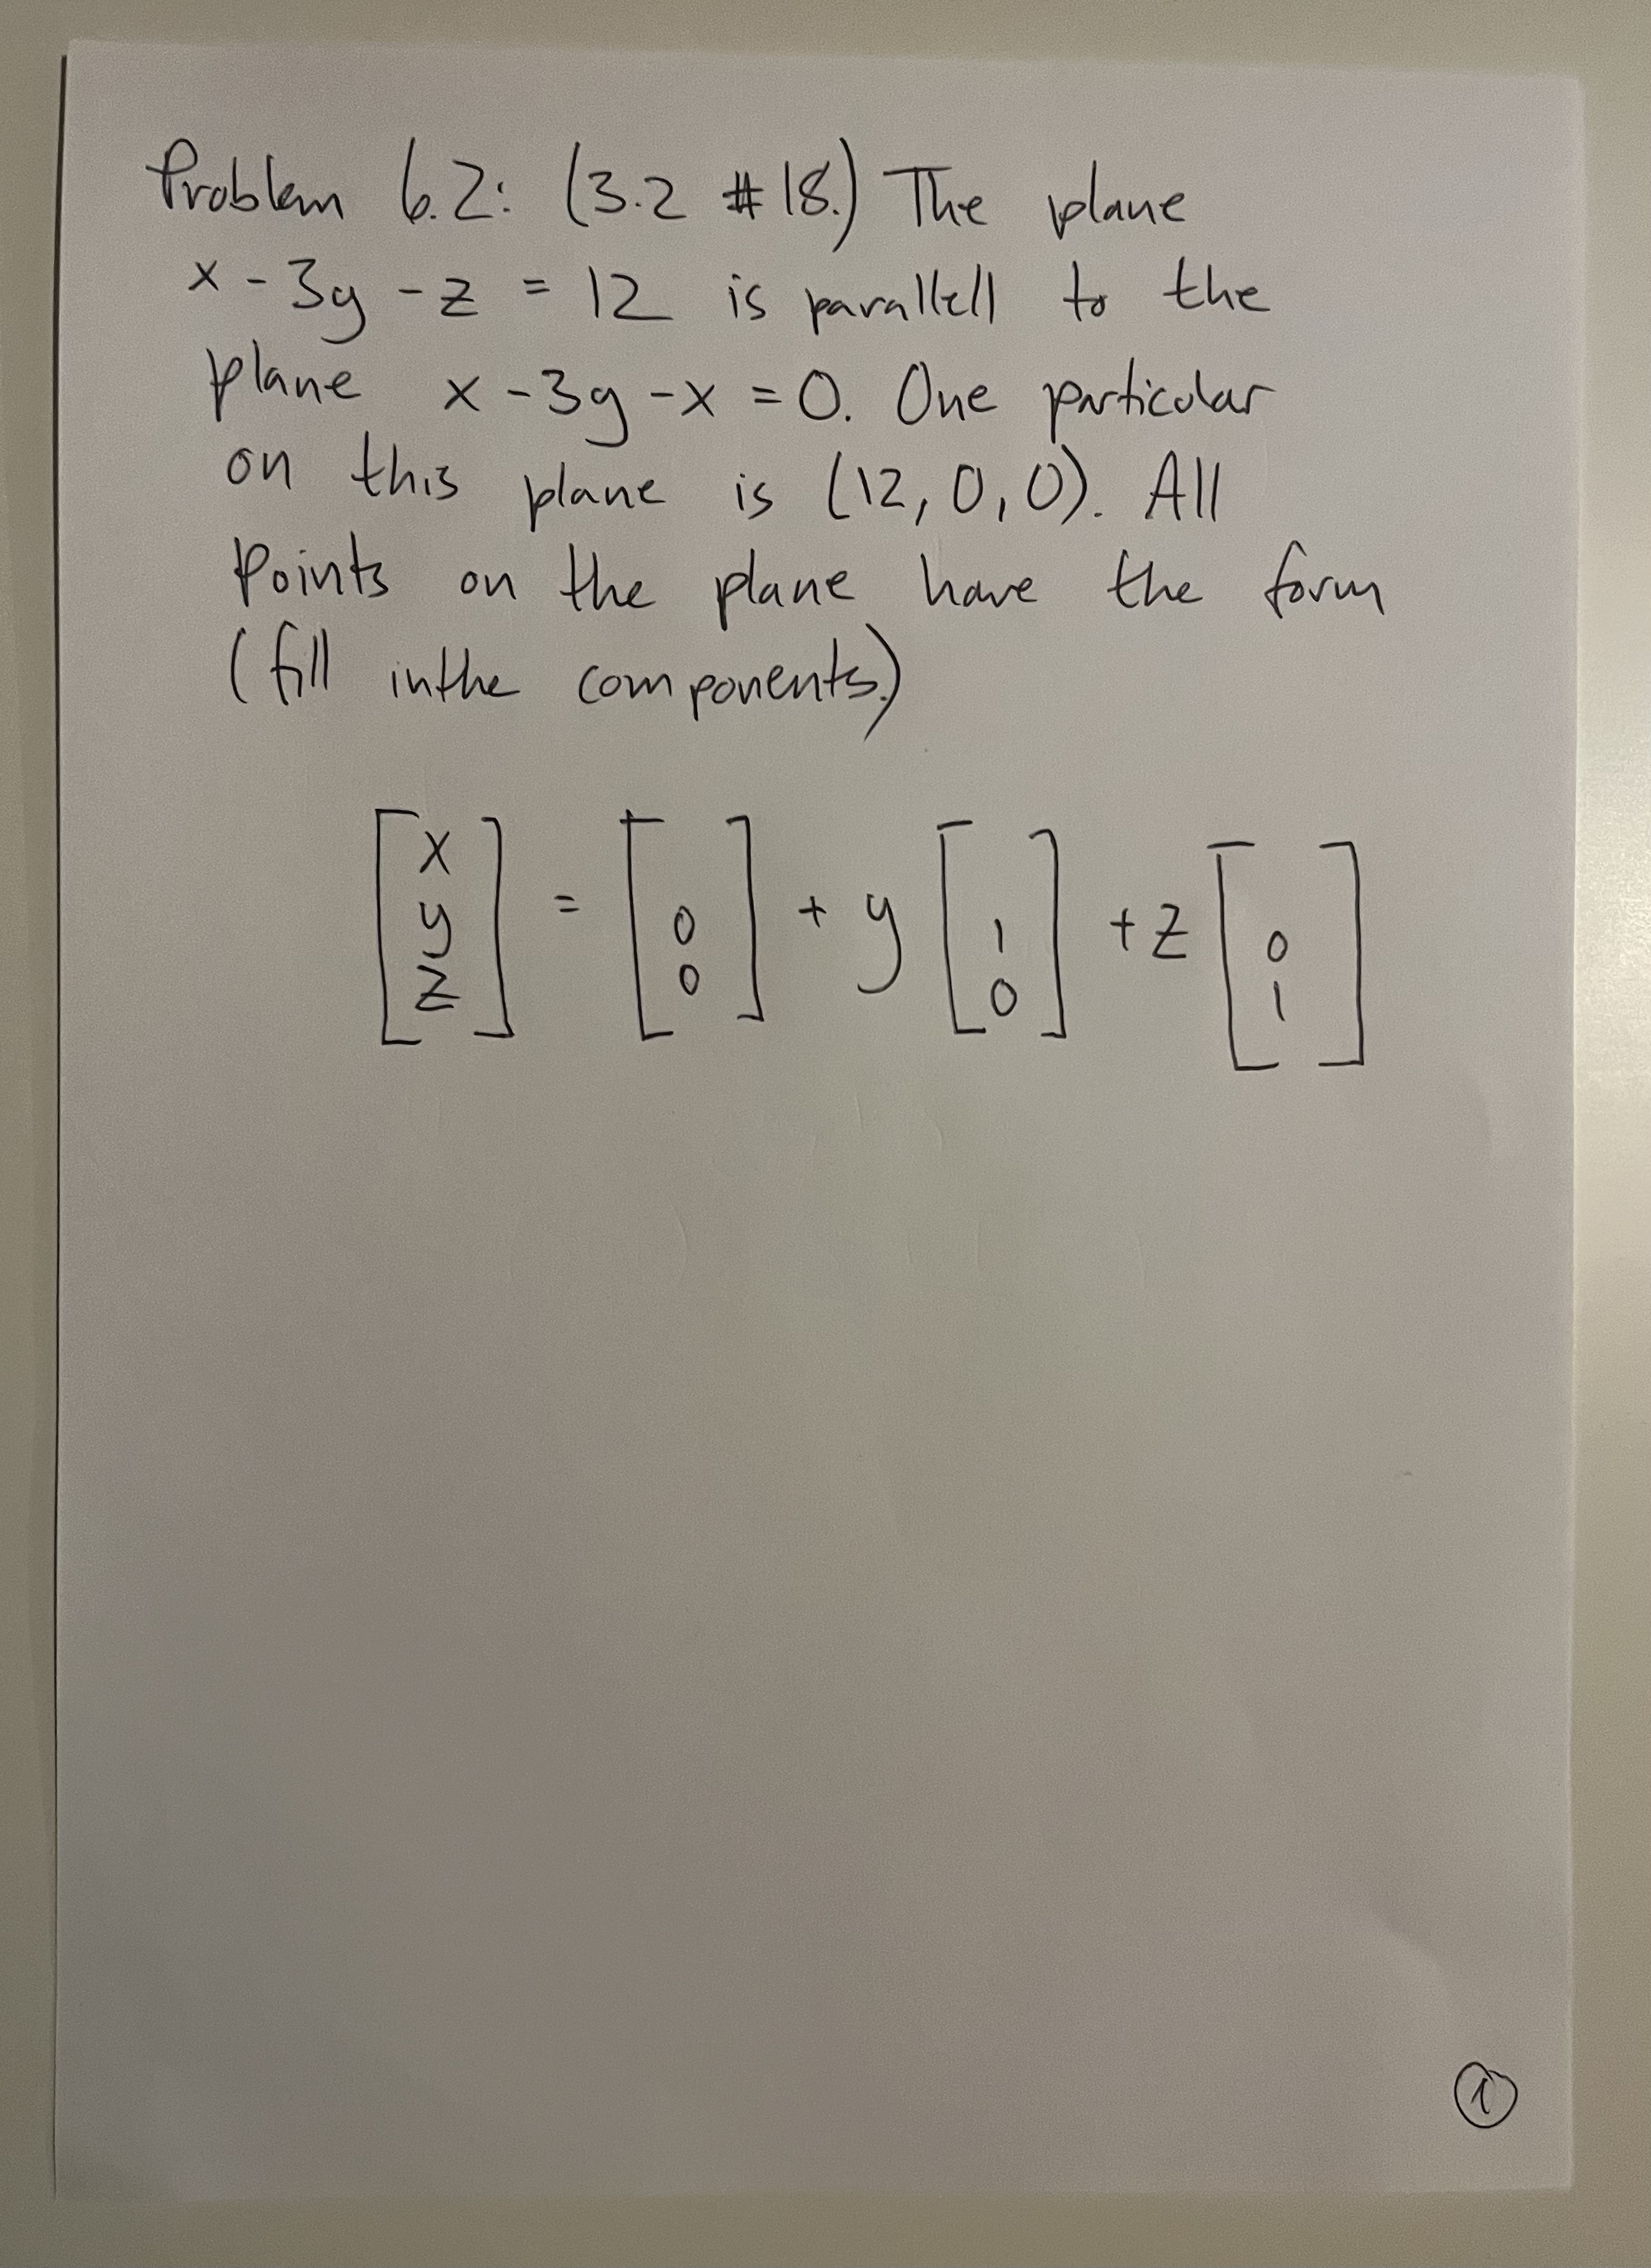 Problem 6.2: (3.2 #18.) The plane
x - 3y - z = 12 is parallell to the
plane x - 3y - x = 0. One particular
on this plane is (12, 0, 0). All
points on the plane have the form
(fill inthe components.)
[x y z] = [0 0] + y [1 0] + z [0 1]
1